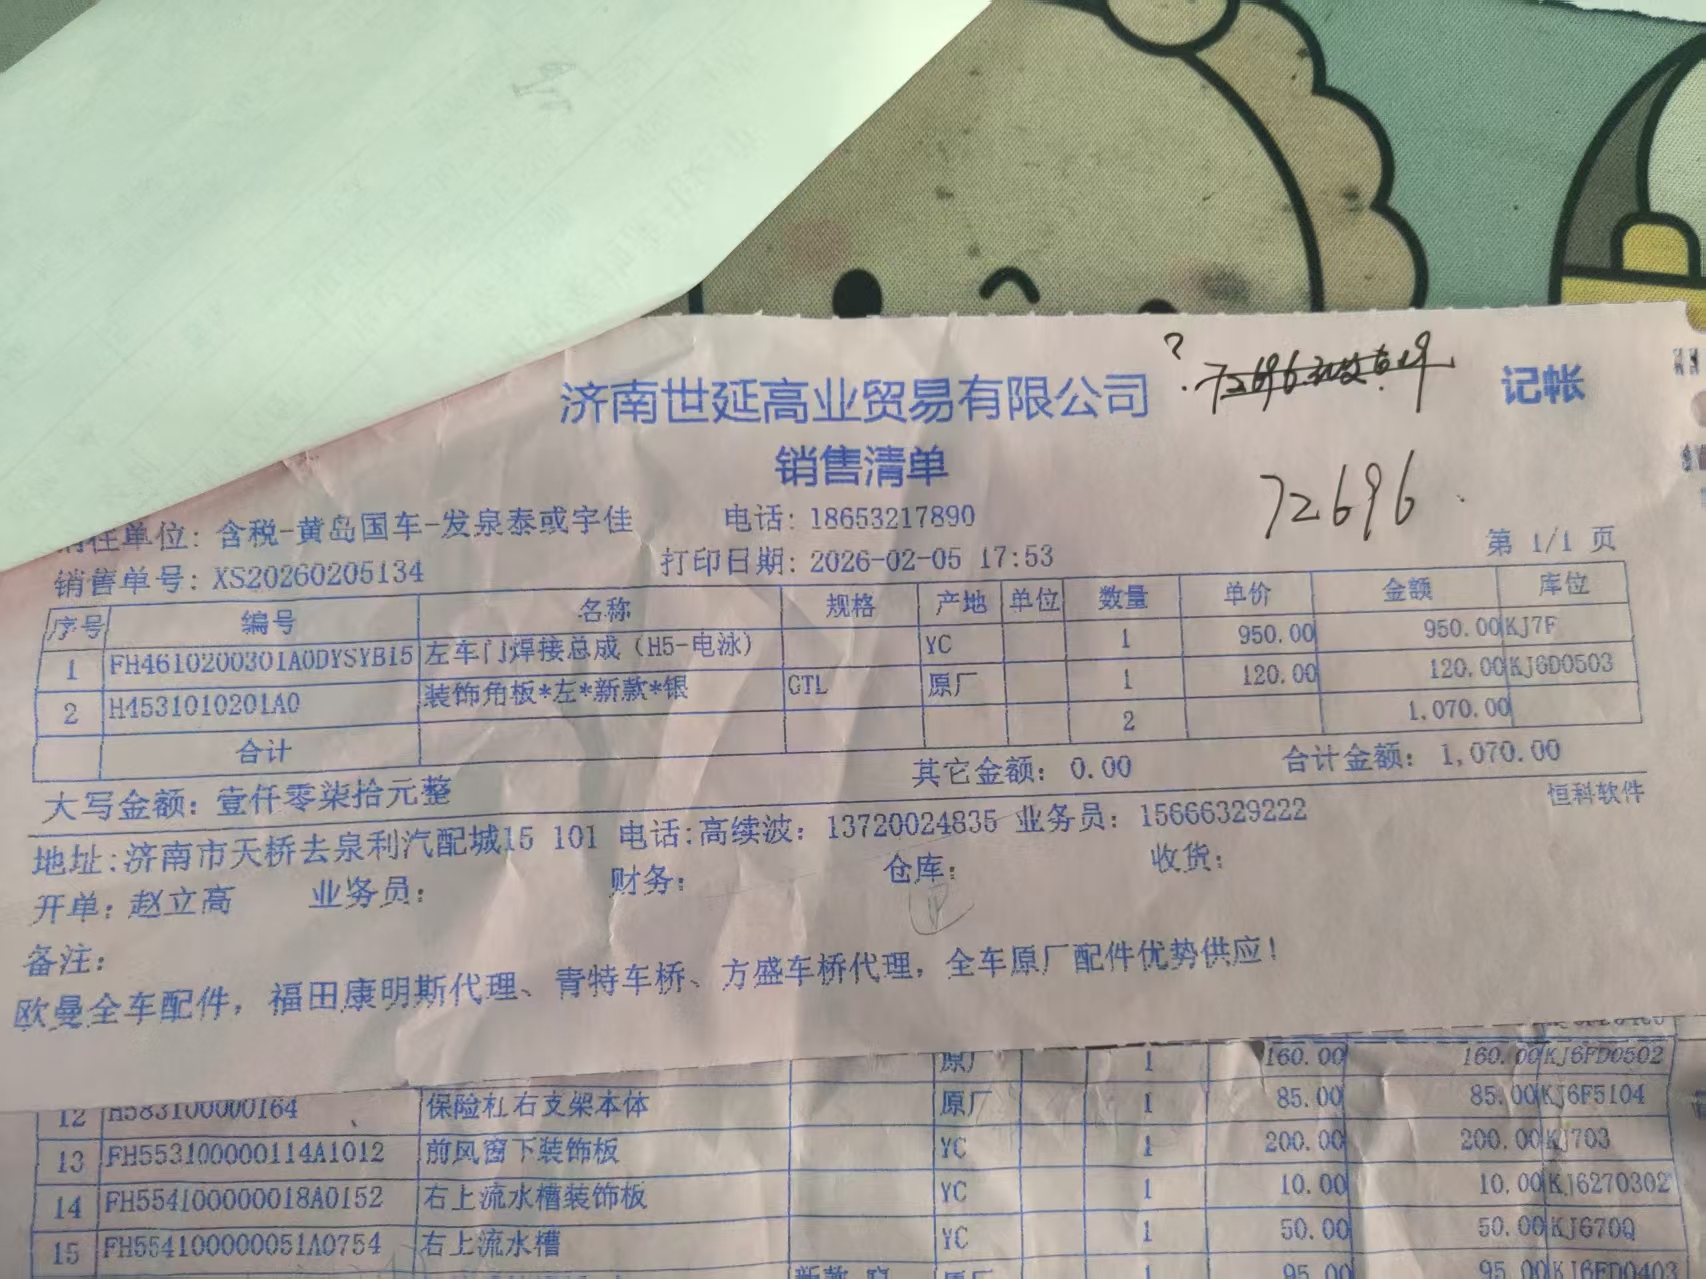 济南世延高业贸易有限公司
记帐
销售清单
72696
销往单位: 含税-黄岛国车-发泉泰或宇佳 电话: 18653217890
销售单号: XS20260205134 打印日期: 2026-02-05 17:53 第 1/1 页
序号 编号 名称 规格 产地 单位 数量 单价 金额 库位
1 FH4610200301A0DYSYB15 左车门焊接总成（H5-电泳） YC 1 950.00 950.00 KJ7F
2 H4531010201A0 装饰角板*左*新款*银 GTL 原厂 1 120.00 120.00 KJ6D0503
合计 2 1,070.00
大写金额: 壹仟零柒拾元整 其它金额: 0.00 合计金额: 1,070.00
恒科软件
地址:济南市天桥去泉利汽配城15 101 电话:高续波: 13720024835 业务员: 15666329222
开单: 赵立高 业务员: 财务: 仓库: 收货:
备注:
欧曼全车配件, 福田康明斯代理、青特车桥、方盛车桥代理, 全车原厂配件优势供应!
原厂 1 160.00 160.00 KJ6FD0502
12 H583100000164 保险杠右支架本体 原厂 1 85.00 85.00 KJ6F5104
13 FH553100000114A1012 前风窗下装饰板 YC 1 200.00 200.00 KJ703
14 FH554100000018A0152 右上流水槽装饰板 YC 1 10.00 10.00 KJ6270302
15 FH554100000051A0754 右上流水槽 YC 1 50.00 50.00 KJ670Q
原厂 1 95.00 95.00 KJ6FD0403